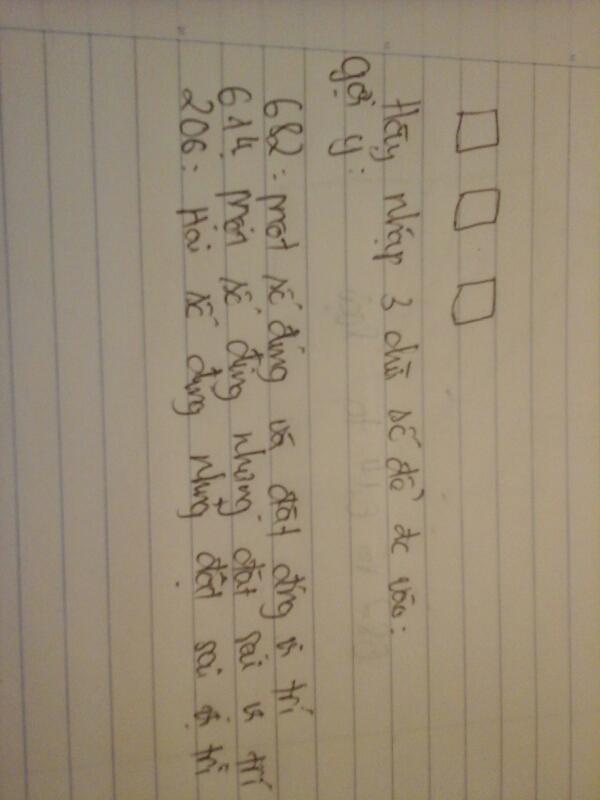 Hãy nhập 3 chữ số để đc vào:
gợi ý:
682: một số đúng và đặt đúng vị trí
614: Một số đúng nhưng đặt sai vị trí
206: Hai số đúng nhưng đặt sai vị trí